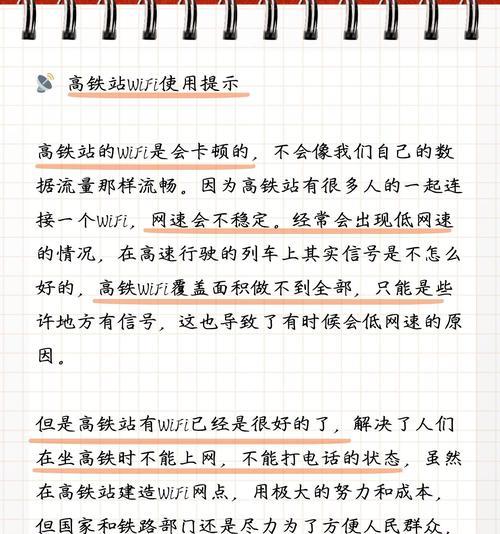 高铁站WiFi使用提示
高铁站的WiFi是会卡顿的，不会像我们自己的数
据流量那样流畅。因为高铁站有很多人的一起连
接一个WiFi，网速会不稳定。经常会出现低网速
的情况，在高速行驶的列车上其实信号是不怎么
好的，高铁WiFi覆盖面积做不到全部，只能是些
许地方有信号，这也导致了有时候会低网速的原
因。
但是高铁站有WiFi已经是很好的了，解决了人们
在坐高铁时不能上网，不能打电话的状态，虽然
在高铁站建造WiFi网点，用极大的努力和成本，
但国家和铁路部门还是尽力为了方便人民群众，